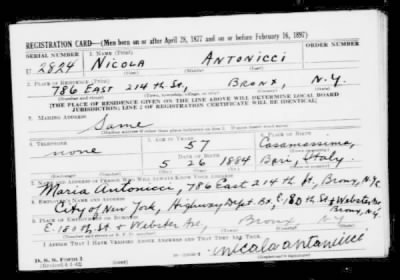 REGISTRATION CARD—(Men born on or after April 28, 1877 and on or before February 16, 1897)
SERIAL NUMBER 1. NAME (Print) ORDER NUMBER
U 2824 NICOLA ANTONICCI
2. PLACE OF RESIDENCE (Print)
786 EAST 214th St, BRONX, N.Y.
(Number and street) (Town, township, village, or city) (County) (State)
[THE PLACE OF RESIDENCE GIVEN ON THE LINE ABOVE WILL DETERMINE LOCAL BOARD
JURISDICTION; LINE 2 OF REGISTRATION CERTIFICATE WILL BE IDENTICAL]
3. MAILING ADDRESS
Same
4. TELEPHONE 5. AGE IN YEARS 6. PLACE OF BIRTH
none 57 Casamassima,
DATE OF BIRTH
5 26 1884 Bari, Italy.
7. NAME AND ADDRESS OF PERSON WHO WILL ALWAYS KNOW YOUR ADDRESS
Maria Antonicci, 786 East 214th St, Bronx, N.Y.
8. EMPLOYER'S NAME AND ADDRESS
City of New York, Highway Dept. Bx, E. 180 th St + Webster Ave, Bronx, N.Y.
9. PLACE OF EMPLOYMENT OR BUSINESS
E. 180 th St + Webster Ave, Bronx N.Y.
I AFFIRM THAT I HAVE VERIFIED ABOVE ANSWERS AND THAT THEY ARE TRUE.
D. S. S. Form 1
nicola antonicci